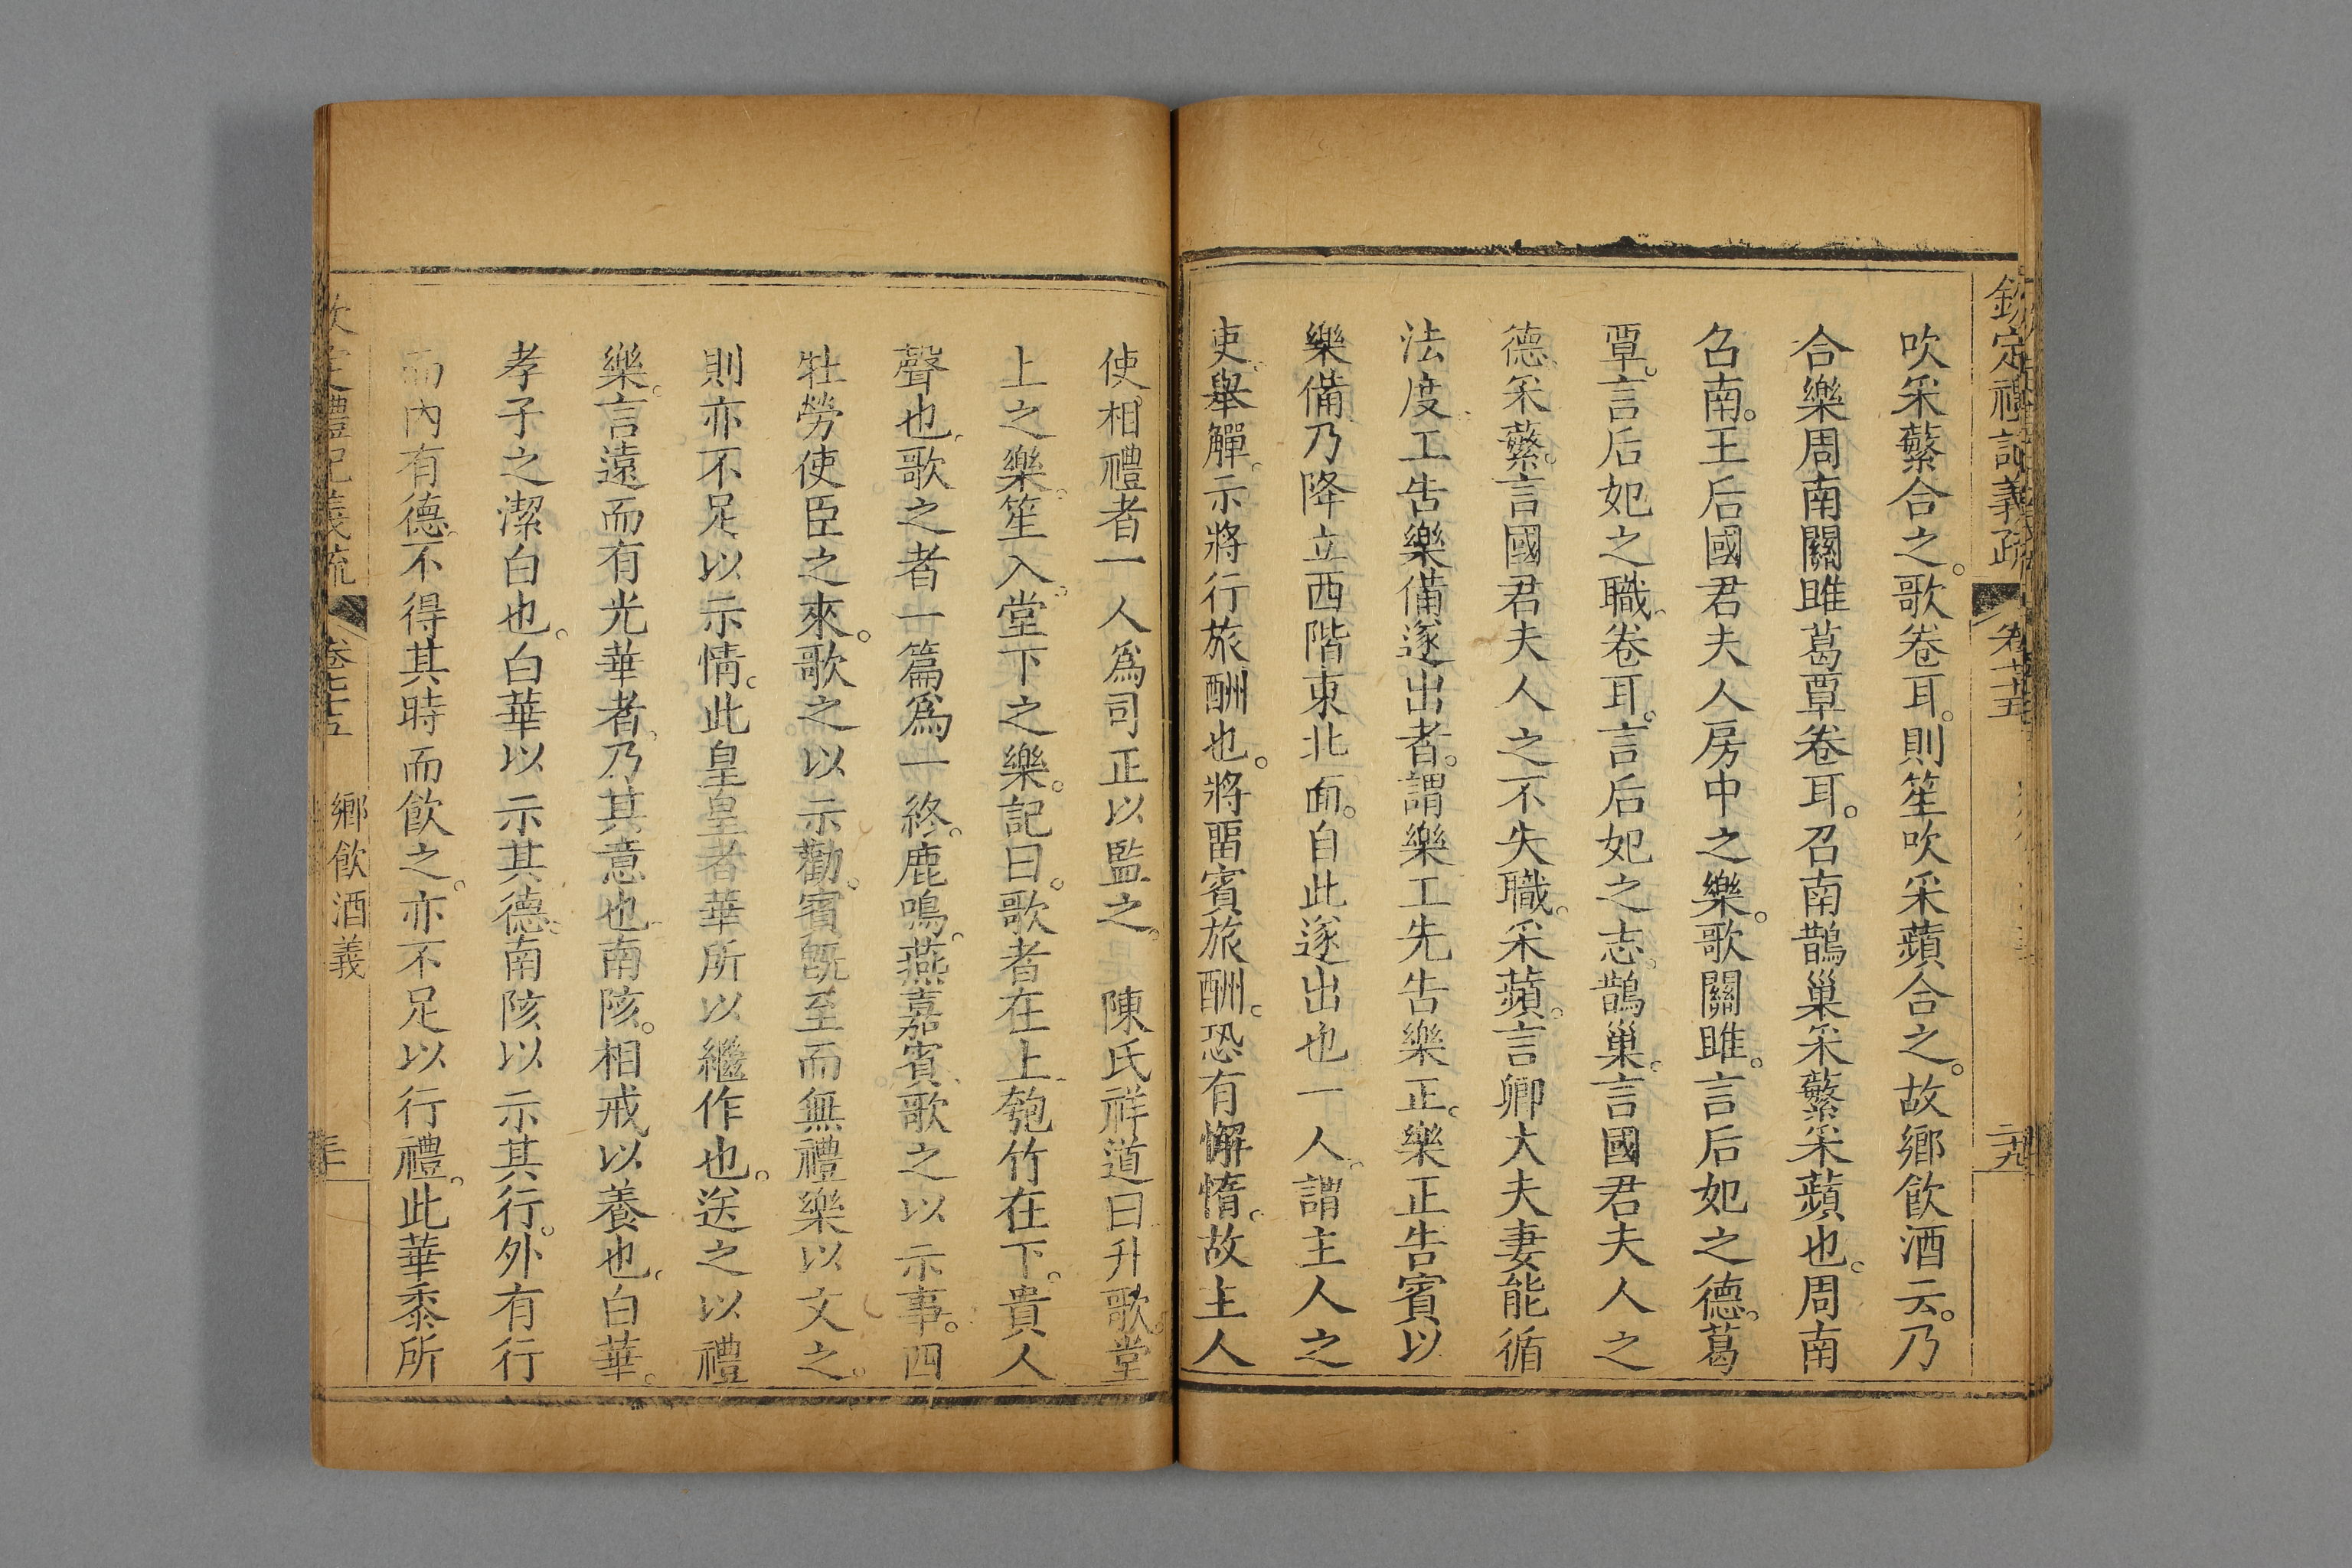 欽定禮記義疏 卷七十五 二十九
吹采蘩合之。歌卷耳。則笙吹采蘋合之。故鄉飲酒云。乃
合樂周南關雎葛覃卷耳。召南鵲巢采蘩采蘋也。周南
召南。王后國君夫人房中之樂。歌關雎。言后妃之德。葛
覃。言后妃之職。卷耳。言后妃之志。鵲巢。言國君夫人之
德。采蘩。言國君夫人之不失職。采蘋。言卿大夫妻能循
法度。工告樂備遂出者。謂樂工先告樂正。樂正告賓以
樂備乃降立西階東北面。自此遂出也一人。謂主人之
吏。舉觶。示將行旅酬也。將畱賓旅酬。恐有懈惰。故主人
使相禮者一人爲司正以監之。 陳氏祥道曰升歌。堂
上之樂。笙入。堂下之樂。記曰。歌者在上匏竹在下。貴人
聲也。歌之者一篇爲一終。鹿鳴。燕嘉賓歌之以示事。四
牡勞使臣之來。歌之以示勸。賓旣至而無禮樂以文之。
則亦不足以示情。此皇皇者華所以繼作也。送之以禮
樂。言遠而有光華者。乃其意也。南陔。相戒以養也。白華。
孝子之潔白也。白華以示其德。南陔以示其行。外有行
而內有德。不得其時而飲之。亦不足以行禮。此華黍所
定禮記義疏 卷七十五 鄉飲酒義 三十